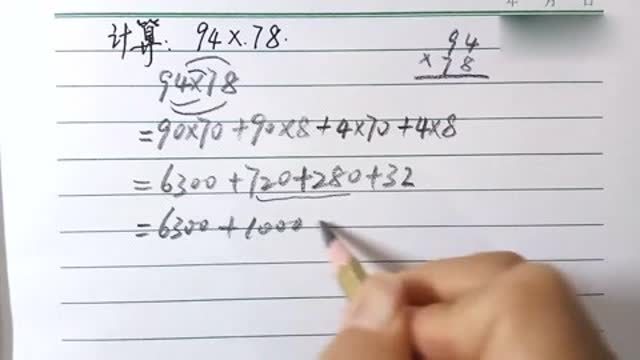 年 月 日
计算: 94×78.
94
×78
94×78
=90×70+90×8+4×70+4×8
=6300+720+280+32
=6300+1000